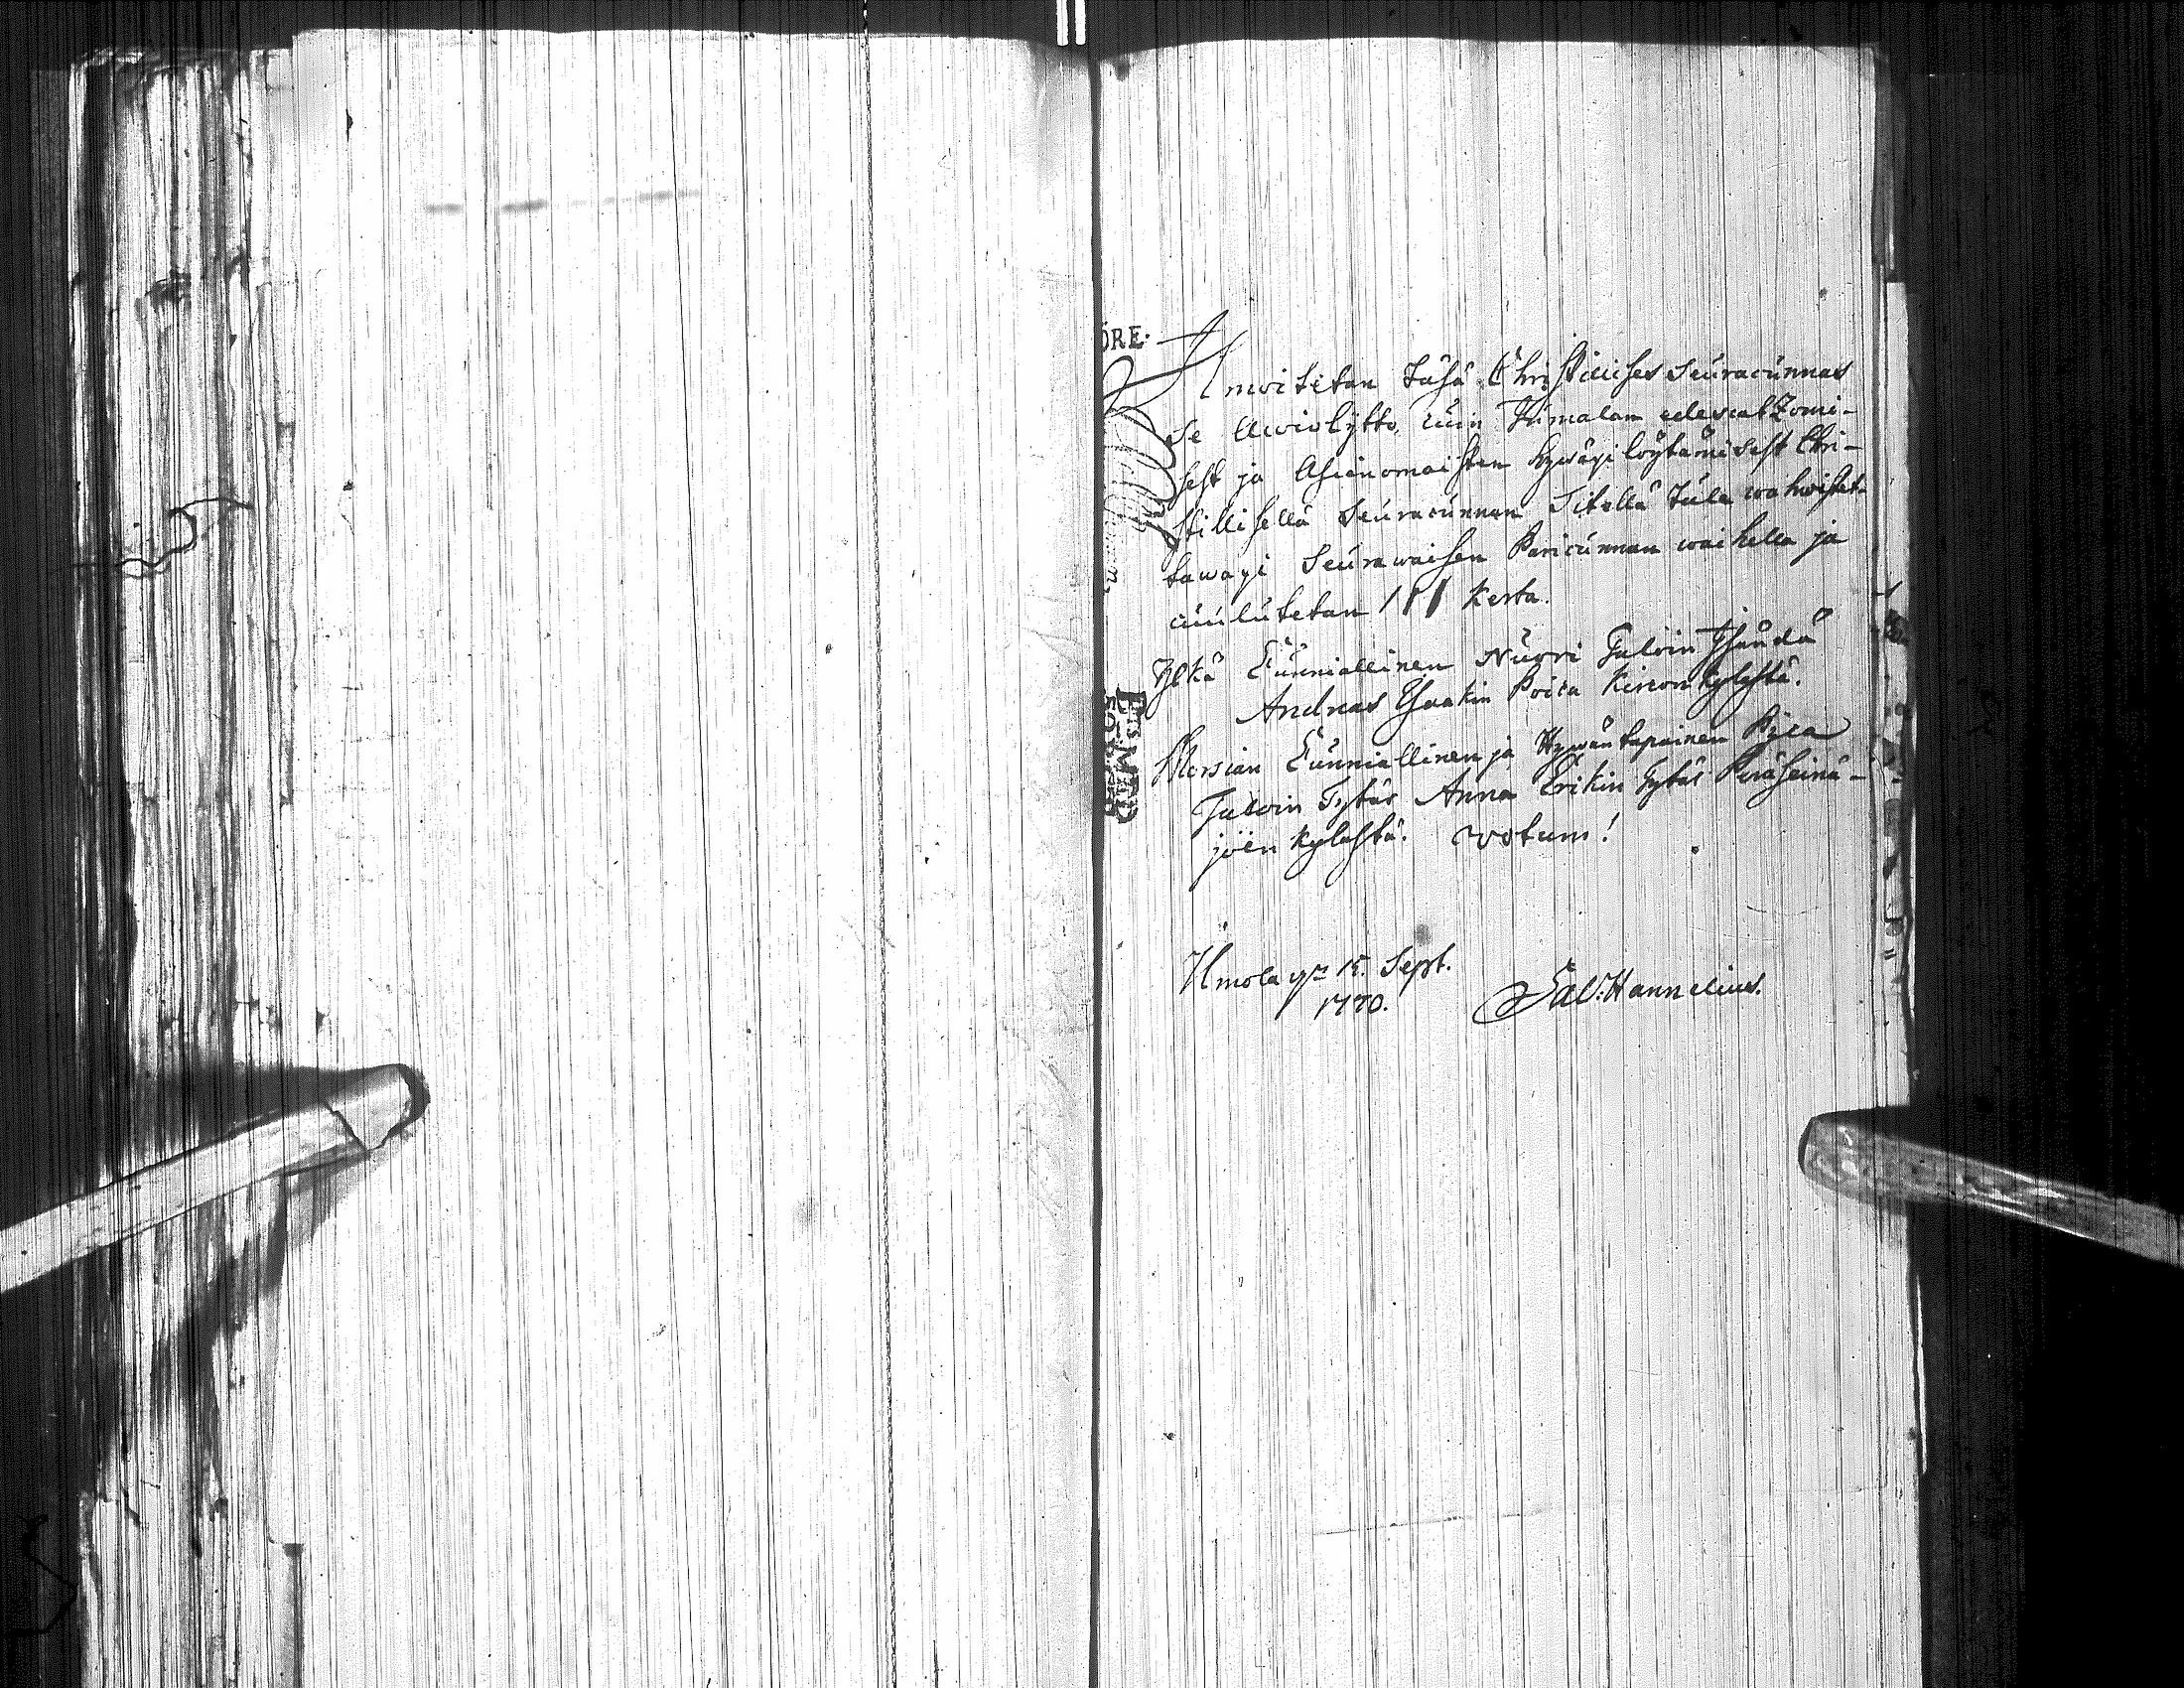 ÖRE.
Ilmoitetan täsä Christilises Seuracunnas
se Awiokäsky, cuin Jumalan edescatzomi-
sest ja Asianomaisten hywäxi löytämisest Chri-
stillisellä Seuracunnan Sitellä tule wahwistet-
tawaxi Seurawaisen Pariscunnan waihella ja
cuulutetan 1 kerta.
Yljkä Cunniallinen Nuori Taloin Isändä
Andreas Isaakin Poica Kirconkylästä.
Morsian Cunniallinen ja Hywäntapainen Pijca
Taloin Tytär Anna Erikin Tytär Peräseinä-
joen kylästä. Votum!
Ilmola 15. Sept.
1770.
Sal: Hannelius.